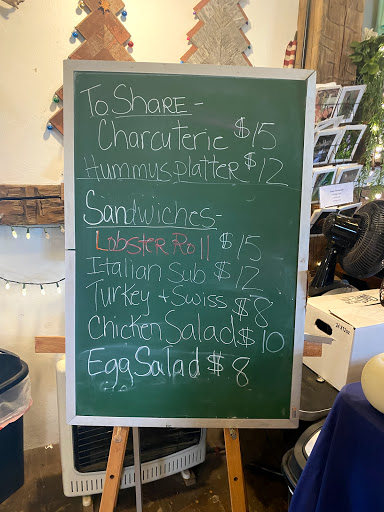 To Share -
Charcuterie $15
Hummus Platter $12
Sandwiches -
Lobster Roll $15
Italian Sub $12
Turkey + Swiss $8
Chicken Salad $10
Egg Salad $8